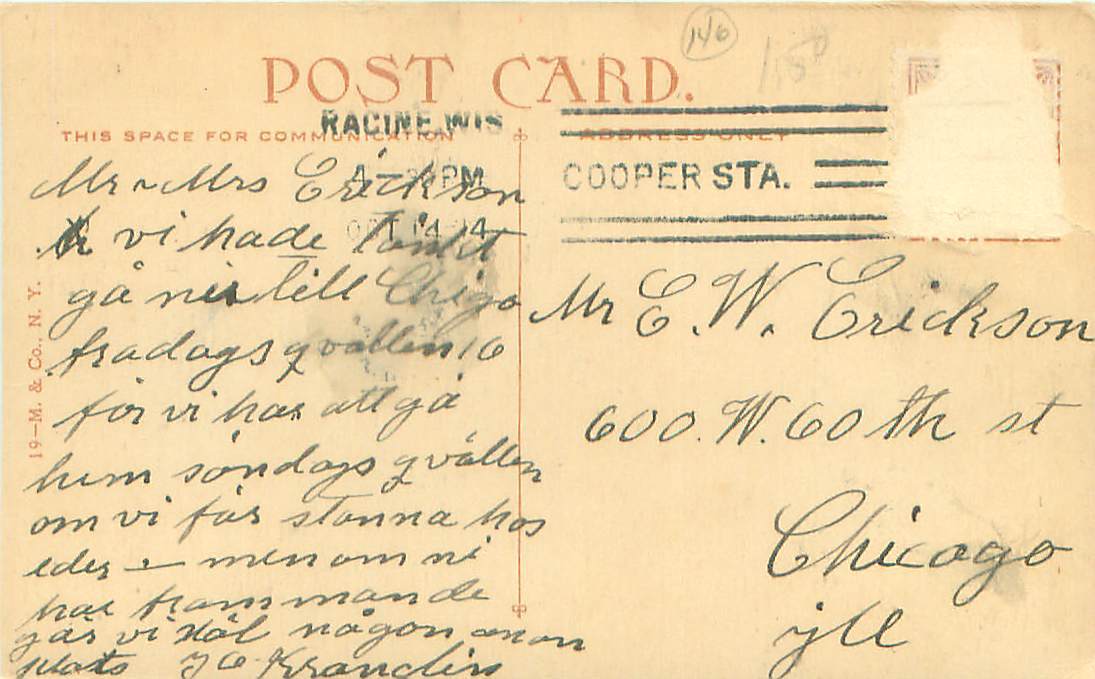 146
158
POST CARD.
THIS SPACE FOR COMMUNICATION
ADDRESS ONLY
RACINE, WIS
4-30 PM
OCT 14
COOPER STA.
19—M. & Co., N. Y.
Mr & Mrs Erickson
vi hade tänkt
gå ner till Chigo
fradags qvällen 16
för vi har att gå
hem söndags qvällen
om vi får stanna hos
eder — men om ni
har frammande
går vi nål någon anan
plats J O Franclin
Mr E. W. Erickson
600. W. 60 th st
Chicago
Ill